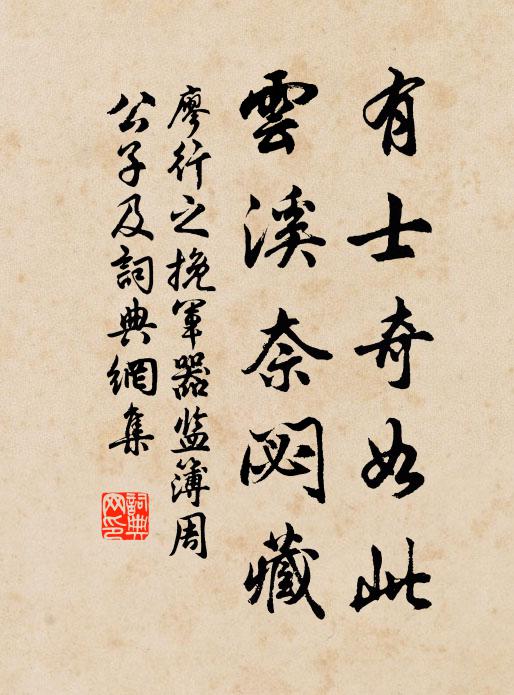 有士奇如此
雲溪奈閟藏
廖行之挽軍器监簿周
公子及詞典網集
詞典网印